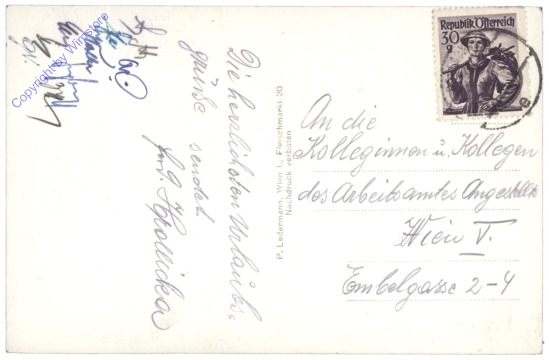 Die herzlichsten Urlaubs-
grüsse sendet
P. Ledermann, Wien I., Fleischmarkt 20
Nachdruck verboten
Republik Österreich
30
g
An die
Kolleginnen u. Kollegen
des Arbeitsamtes Angestellte
Wien V.
Embelgasse 2-4
Copyright by Winstore